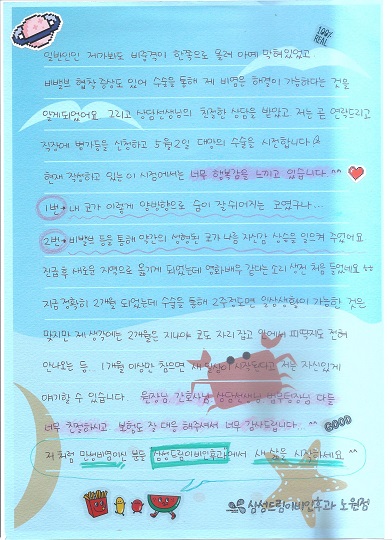 100% REAL
일반인인 제가봐도 비중격이 한쪽으로 몰려 아예 막혀있었고.
비밸브 협착 증상도 있어 수술을 통해 제 비염은 해결이 가능하다는 것을
알게되었어요 그리고 상담선생님의 친절한 상담을 받았고 저는 곧 연락드리고
직장에 병가등을 신청하고 5월2일 대망의 수술을 시전합니다
현재 작성하고 있는 이 시점에서는 너무 행복감을 느끼고 있습니다 ^^
1번→ 내 코가 이렇게 양방향으로 숨이 잘 쉬어지는 코였구나...
2번→ 비밸브 등을 통해 약간의 성형된 코가 나름 자신감 상승을 일으켜 주었어요
진급후 새로운 지역으로 옮기게 되었는데 영화배우 같다는 소리 생전 처음 들었네요 ㅎㅎ
지금 정확히 2개월 되었는데 수술을 통해 2주정도면 일상생활이 가능한 것은
맞지만 제 생각에는 2개월은 지나야 코도 자리 잡고 안에서 피딱지도 전혀
안나오는 등. 1개월 이상만 참으면 새 일상이 시작된다고 저는 자신있게
얘기할 수 있습니다. 원장님 간호사님 상담선생님 다들
너무 친절하고 보험도 잘 대응 해주셔서 너무 감사드립니다... ^^
GOOD
저 처럼 만성비염이신 분들 삼성드림이비인후과에서 새 삶을 시작하세요 ^^
삼성드림이비인후과 노원점